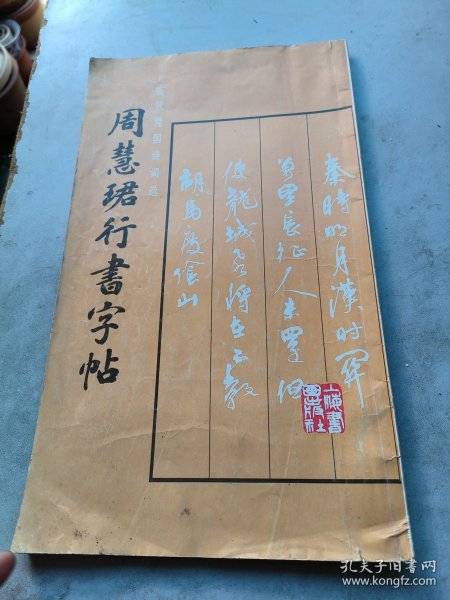 周慧珺行書字帖
古代爱国诗词选
秦時明月漢時關
萬里長征人未還但
使龍城飛將在不教
胡馬度陰山
上海書畫出版社
孔夫子旧书网
www.kongfz.com